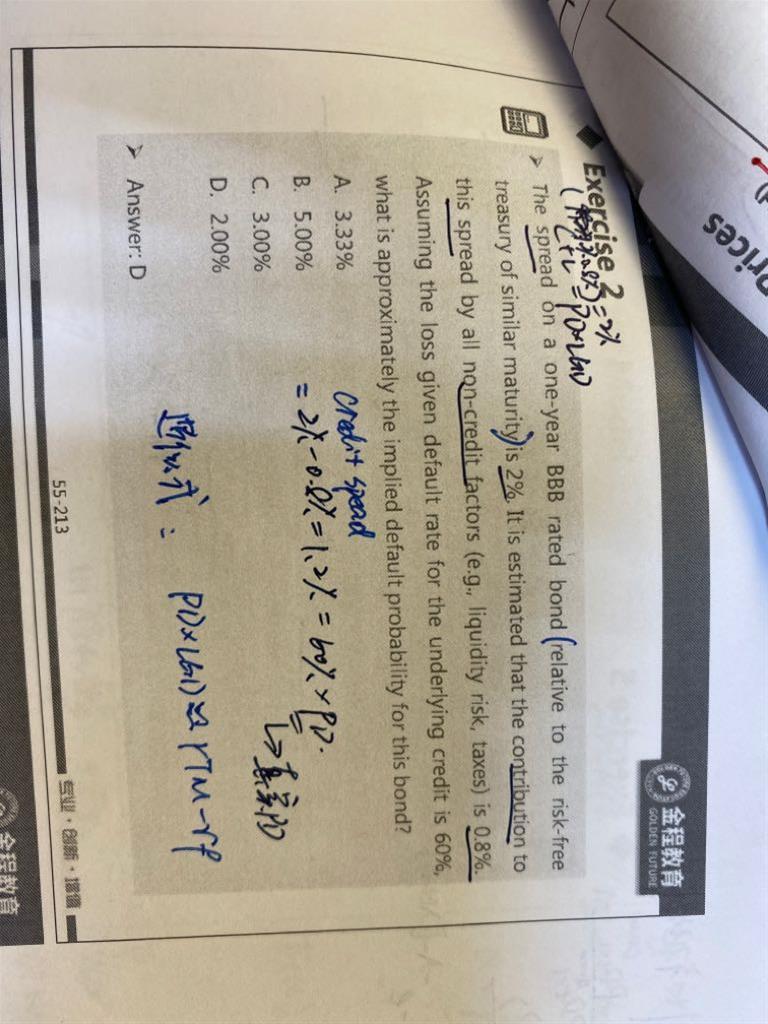 rices
金程教育
GOLDEN FUTURE
Exercise 2
=2%
=PD×LGD
The spread on a one-year BBB rated bond (relative to the risk-free
treasury of similar maturity) is 2%. It is estimated that the contribution to
this spread by all non-credit factors (e.g., liquidity risk, taxes) is 0.8%.
Assuming the loss given default rate for the underlying credit is 60%,
what is approximately the implied default probability for this bond?
A. 3.33%
B. 5.00%
C. 3.00%
D. 2.00%
credit spead
= 2% - 0.8% = 1.2% = 60% × PD.
Answer: D
公式: PD×LGD ≈ YTM-rf
55-213
专业·创新·增值
金程教育